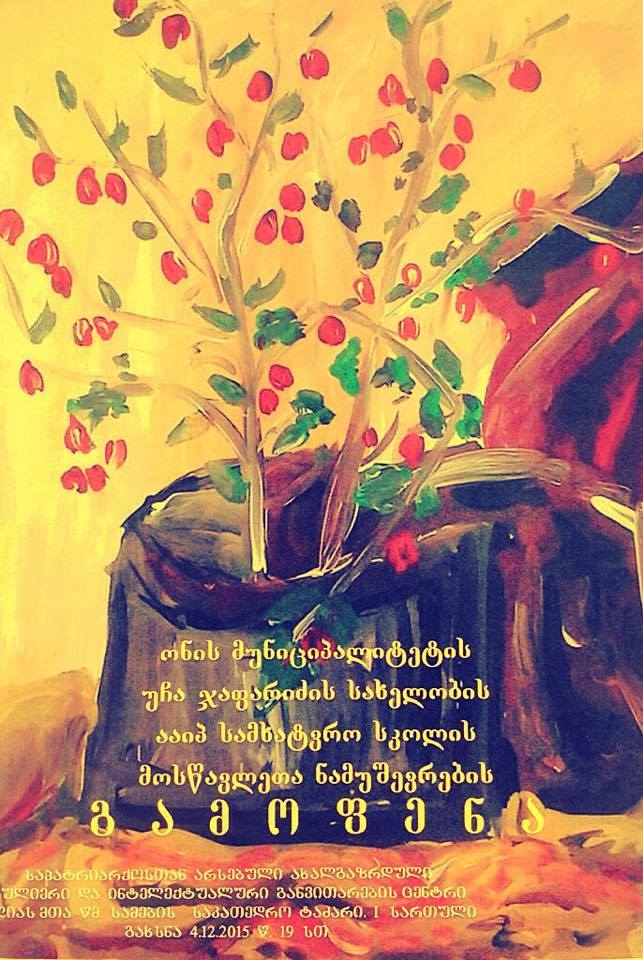 ონის მუნიციპალიტეტის
უჩა ჯაფარიძის სახელობის
ააიპ სამხატვრო სკოლის
მოსწავლეთა ნამუშევრების
გამოფენა
საპატრიარქოსთან არსებული ახალგაზრდული
ულიერი და ინტელექტუალური განვითარების ცენტრი
ლიას მთა წმ. სამების საკათედრო ტაძარი. I სართული
გახსნა 4.12.2015 წ. 19 სთ